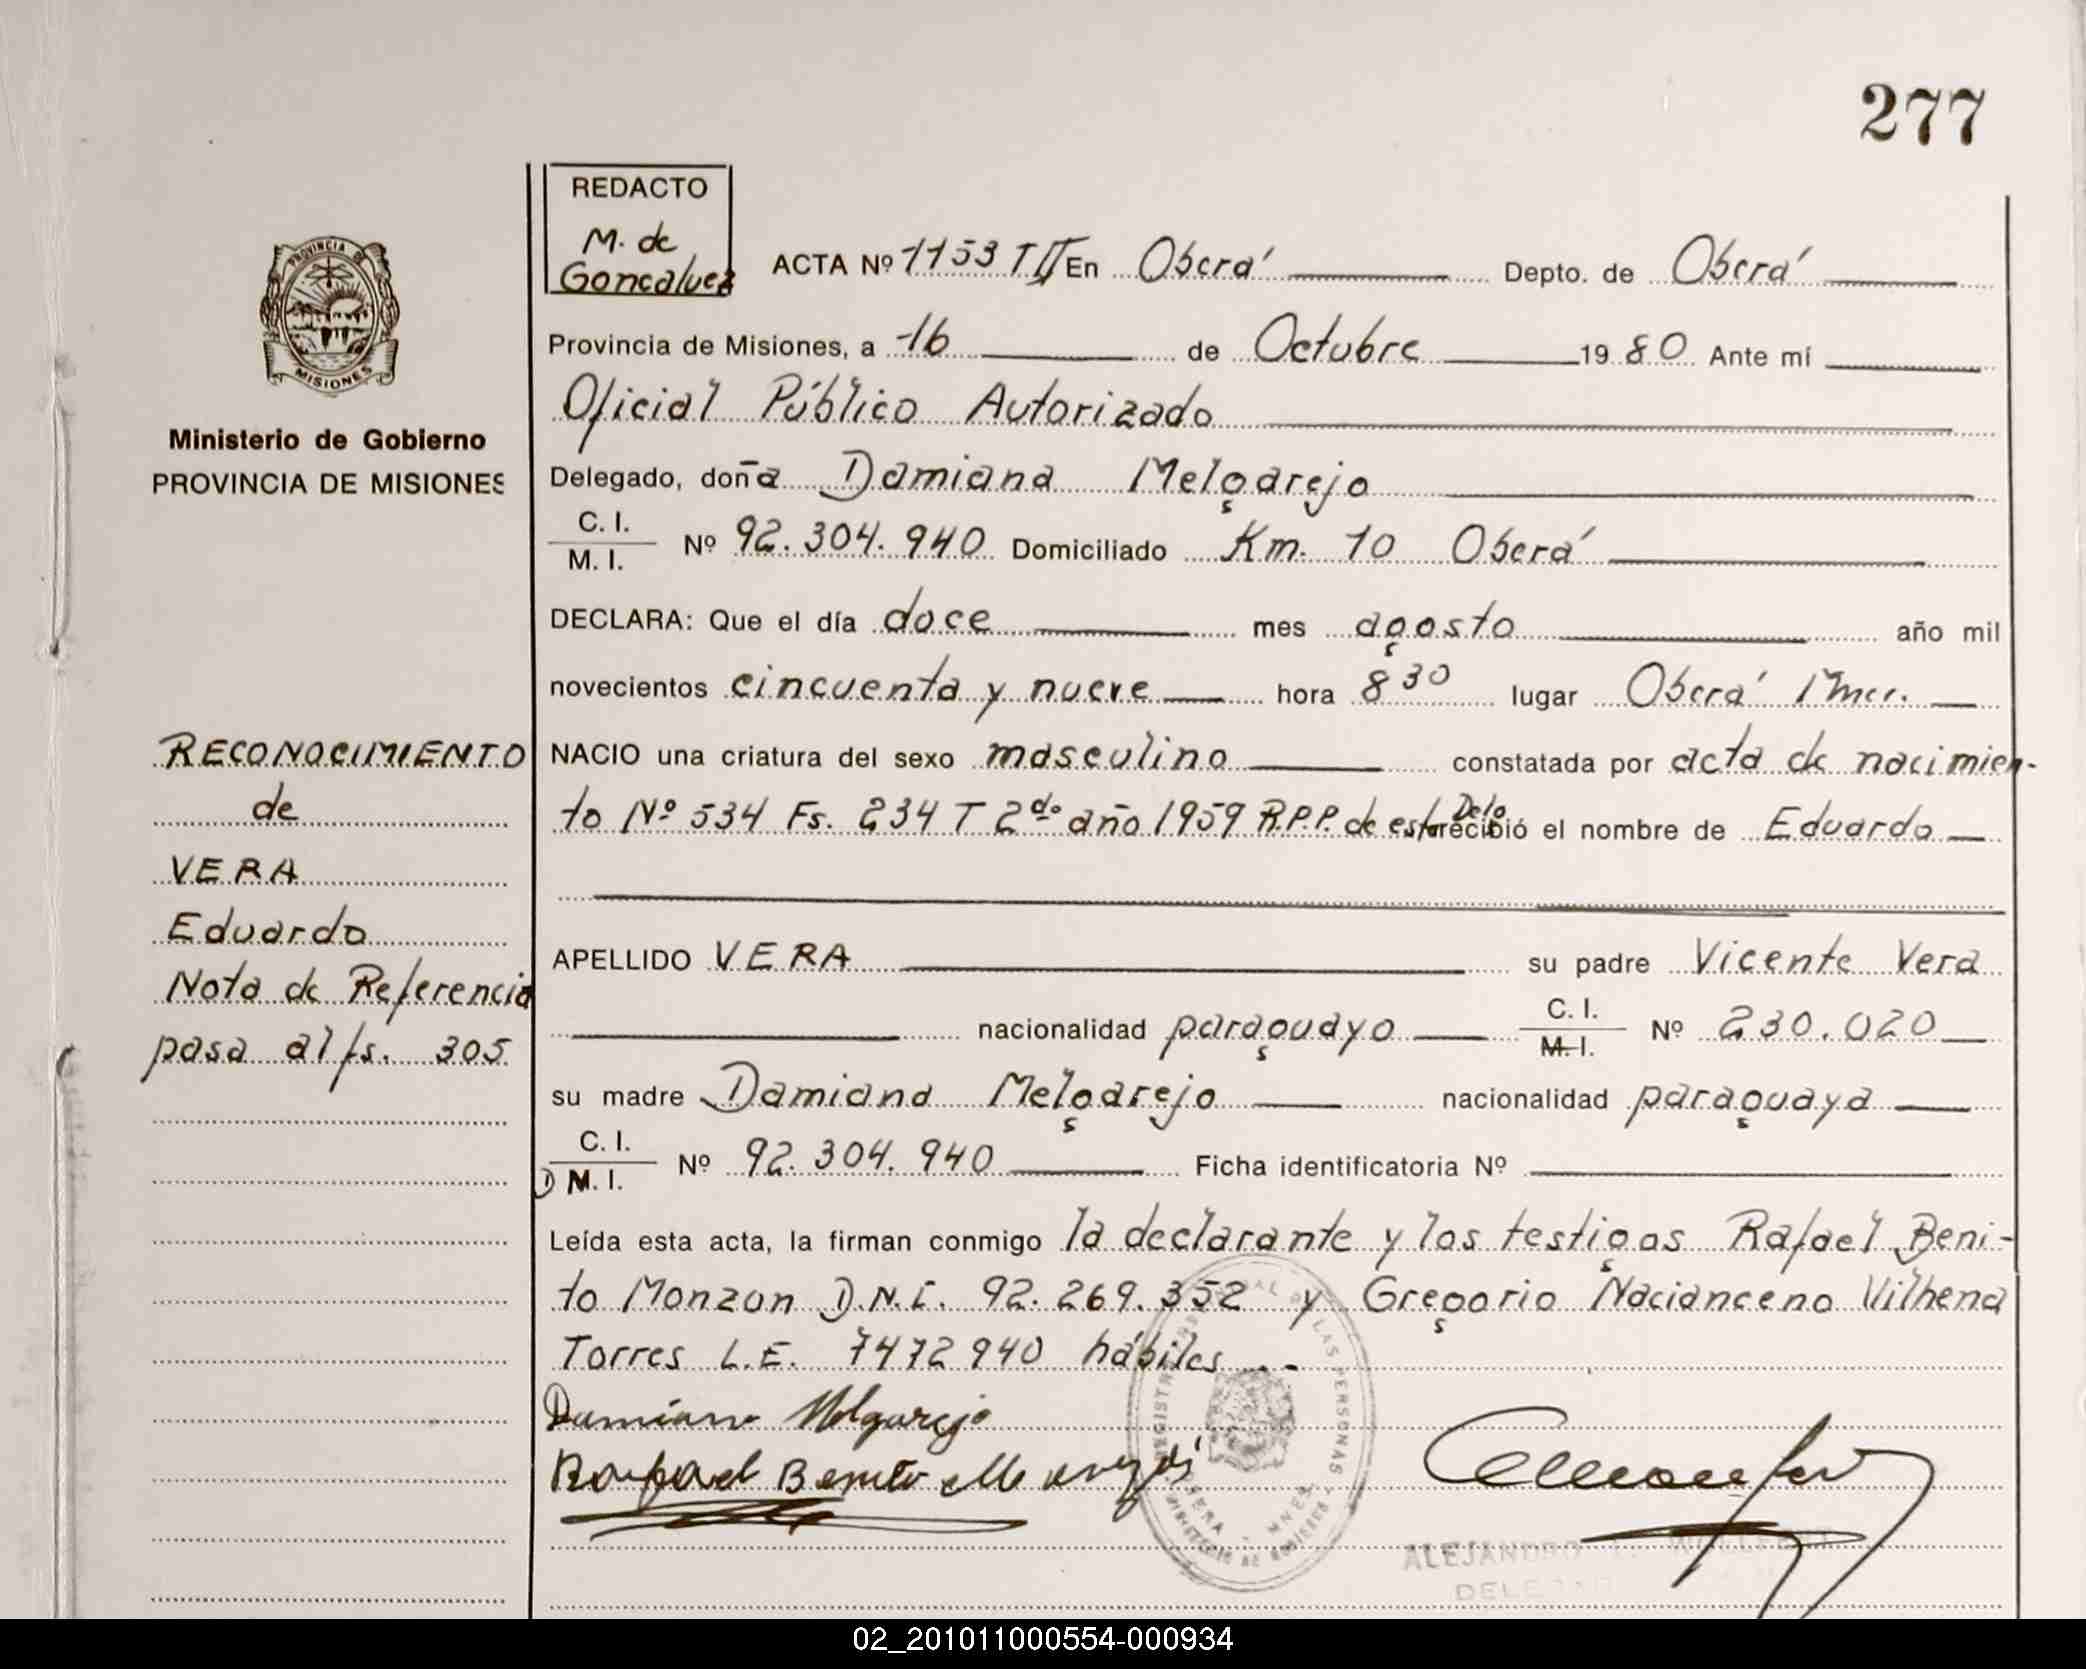 277
REDACTO
M. de
Goncalvez
ACTA Nº 1153 T II En Oberá Depto. de Oberá
Provincia de Misiones, a 16 de Octubre 1980 Ante mí
Oficial Público Autorizado
Delegado, doña Damiana Melgarejo
C. I.
M. I. Nº 92.304.940 Domiciliado Km. 10 Oberá
DECLARA: Que el día doce mes agosto año mil
novecientos cincuenta y nueve hora 8 30 lugar Oberá Mnes.
NACIO una criatura del sexo masculino constatada por acta de nacimien-
to Nº 534 Fs. 234 T 2do año 1959 R.P.P. de esta Delg recibió el nombre de Eduardo
APELLIDO VERA su padre Vicente Vera
nacionalidad paraguayo C. I. M. I. Nº 230.020
su madre Damiana Melgarejo nacionalidad paraguaya
C. I.
D M. I. Nº 92.304.940 Ficha identificatoria Nº
Leída esta acta, la firman conmigo la declarante y los testigos Rafael Beni-
to Monzon D.N.I. 92.269.352 y Gregorio Nacianceno Vilhena
Torres L.E. 7472940 hábiles..-
Damiana Melgarejo
Rafael Benito Monzon
PROVINCIA DE
MISIONES
Ministerio de Gobierno
PROVINCIA DE MISIONES
RECONOCIMIENTO
de
VERA
Eduardo
Nota de Referencia
pasa al fs. 305
LAS PERSONAS
OBERA - MNES
ALEJANDRO
02_201011000554-000934